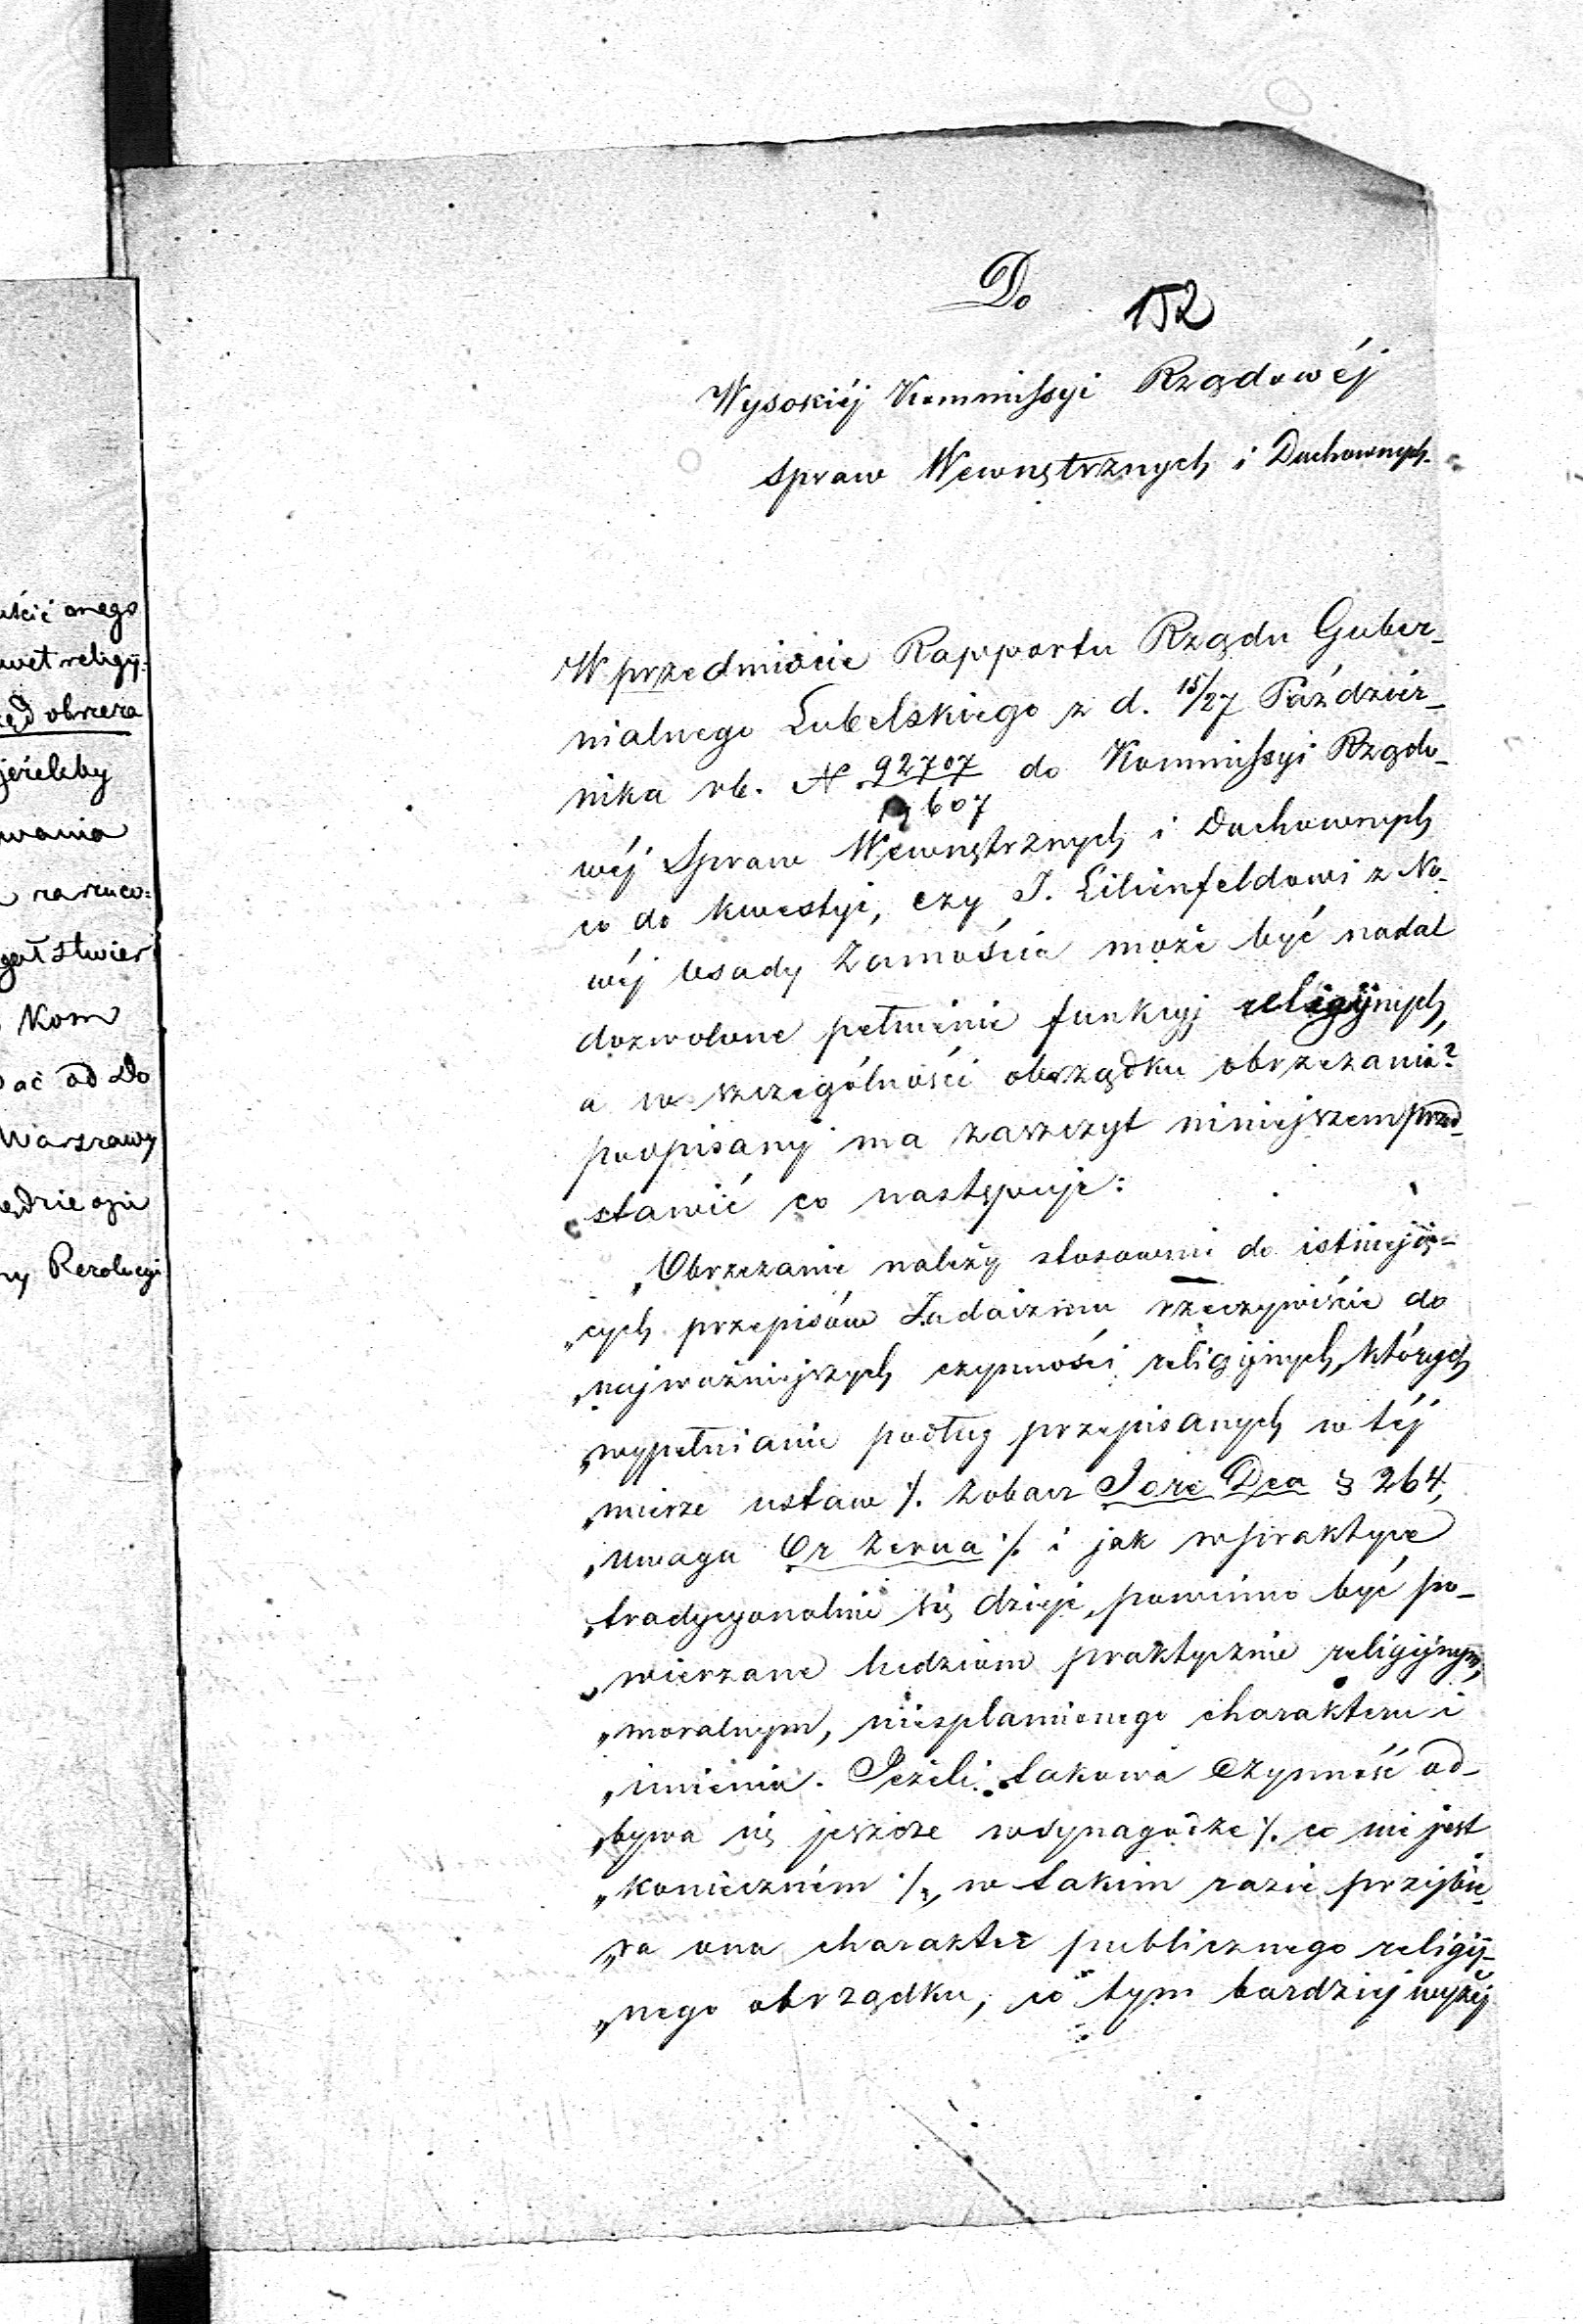 Do
152
Wysokiéj Kommissyi Rządowéj
Spraw Wewnętrznych i Duchownych.
W przedmiocie Rapportu Rządu Guber-
nialnego Lubelskiego z d. 15/27 Paździer-
nika rb. N 92707 do Kommissyi Rządo-
607
wéj Spraw Wewnętrznych i Duchownych
co do kwestyi, czy J. Lilienfeldowi z No-
wéj Osady Zamościa może być nadal
dozwolone pełnienie funkcyj religijnych,
a w szczególności obrządku obrzezania?
podpisany ma zaszczyt niniejszem przed-
stawić co następuje:
„Obrzezanie należy stosownie do istnieją-
„cych przepisów Judaizmu rzeczywiście do
„najważniejszych czynności religijnych, których
„wypełnianie podług przepisanych w téj
„mierze ustaw /. Zobacz Jore Dea § 264,
„uwaga Or Zerua ./. i jak w praktyce
„tradycyonalnie się dzieje, powinno być po-
„wierzane ludziom praktycznie religijnym,
„moralnym, niesplamionego charakteru i
„imienia. Jeżeli takowa czynność od-
„bywa się jeszcze w synagodze /. co nie jest
„konieczném /., w takim razie przybie-
„ra ona charakter publicznego religij-
„nego obrządku, co tym bardziej wyżéj
onego
religij:
obrzeza
jeżeliby
Kom
ać od Do
Warszawy
Rezolucyi